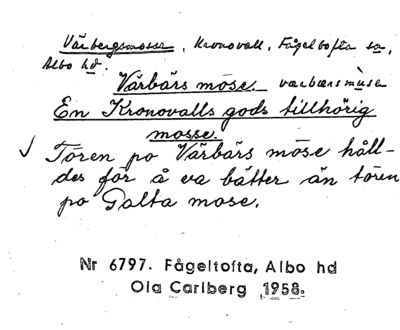 Värbergsmosse, Kronovall, Fågeltofta sn,
Albo hd.
Värbärs möse.værbærsmùsə
En Kronovalls gods tillhörig
mosse.
✓ Tören po Värbärs möse håll-
des för å va bätter än tören
po Galta mose.
Nr 6797. Fågeltofta, Albo hd
Ola Carlberg 1958.